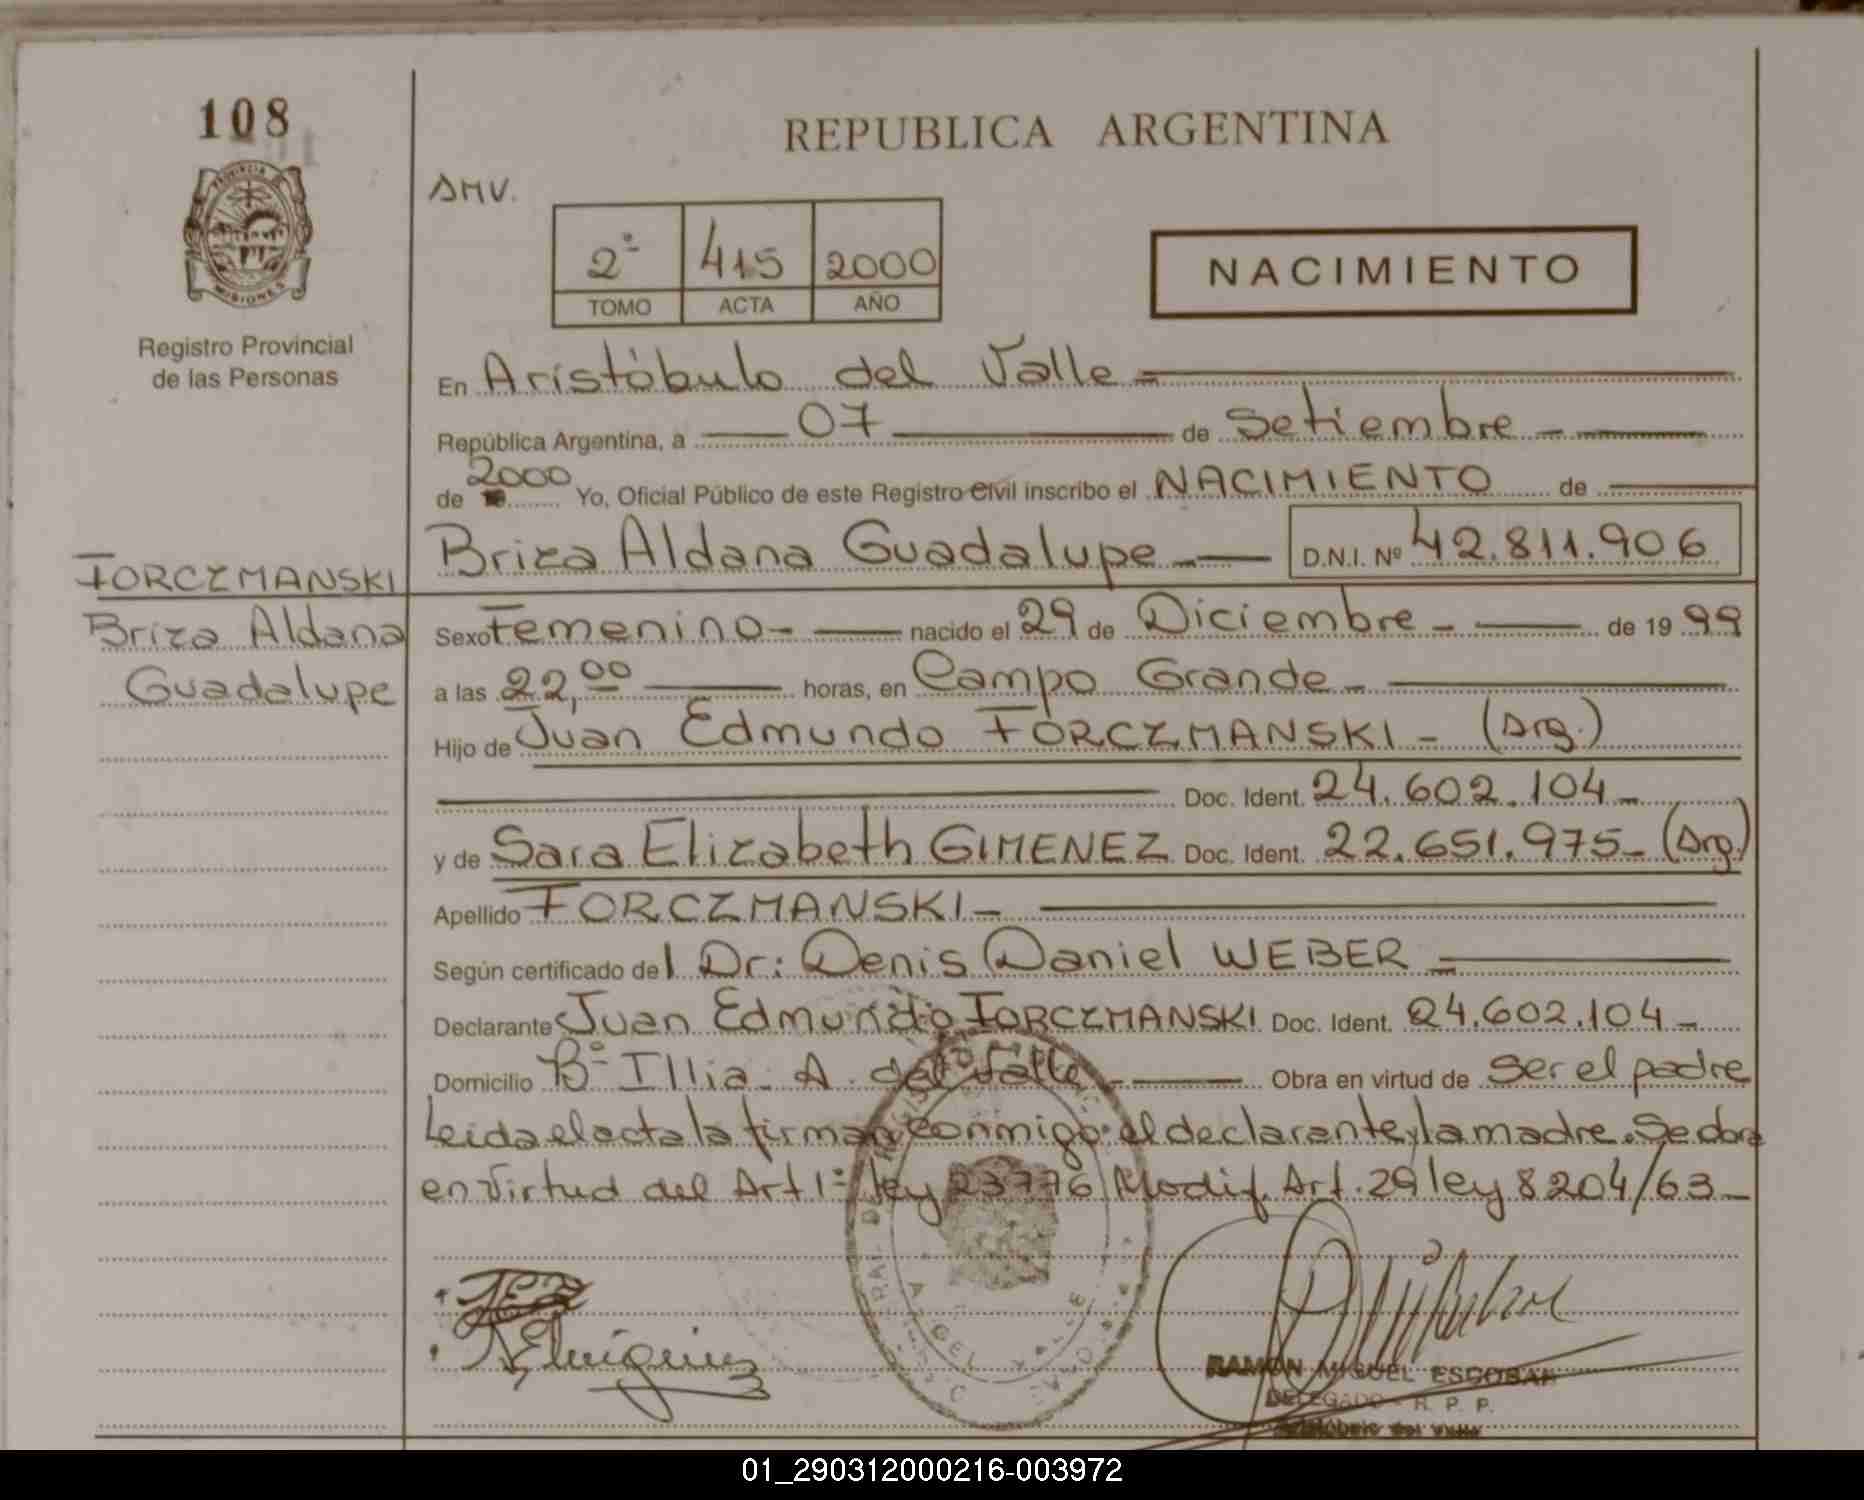 108
PROVINCIA
MISIONES
Registro Provincial
de las Personas
REPUBLICA ARGENTINA
AMV.
2° 415 2000
TOMO ACTA AÑO
NACIMIENTO
En Aristóbulo del Valle
República Argentina, a 07 de Setiembre
de 2000 Yo, Oficial Público de este Registro Civil inscribo el NACIMIENTO de
Briza Aldana Guadalupe D.N.I. Nº 42.811.906
TORCZMANSKI
Briza Aldana
Guadalupe
Sexo Femenino nacido el 29 de Diciembre de 1999
a las 22,00 horas, en Campo Grande
Hijo de Juan Edmundo TORCZMANSKI - (Arg.)
Doc. Ident. 24.602.104
y de Sara Elizabeth GIMENEZ Doc. Ident. 22.651.975 (Arg.)
Apellido TORCZMANSKI
Según certificado del Dr: Denis Daniel WEBER
Declarante Juan Edmundo TORCZMANSKI Doc. Ident. 24.602.104
Domicilio Bº Illia. A. del Valle Obra en virtud de ser el padre
Leida el acta la firman conmigo: el declarante y la madre. Se obra
en virtud del Art 1º ley 23776 Modif. Art. 29 ley 8204/63
RAMON MIGUEL ESCOBAR
DELEGADO R. P. P.
Aristóbulo del Valle
01_290312000216-003972